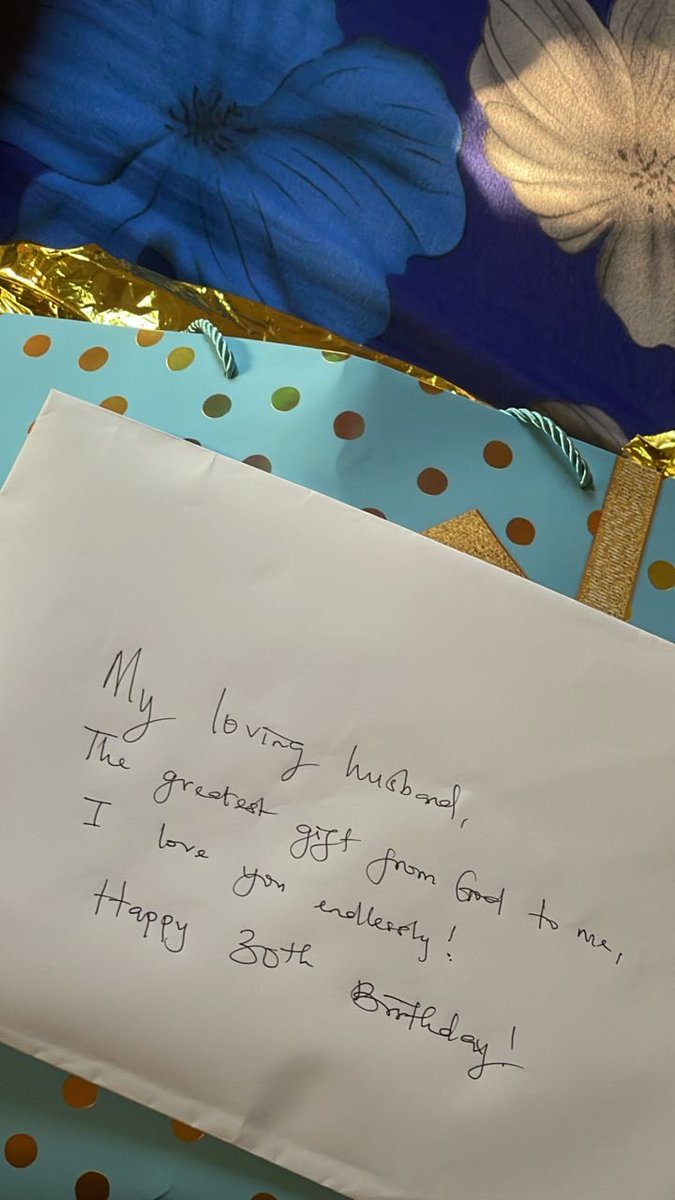 My loving husband,
The greatest gift from God to me,
I love you endlessly!
Happy 30th Birthday!